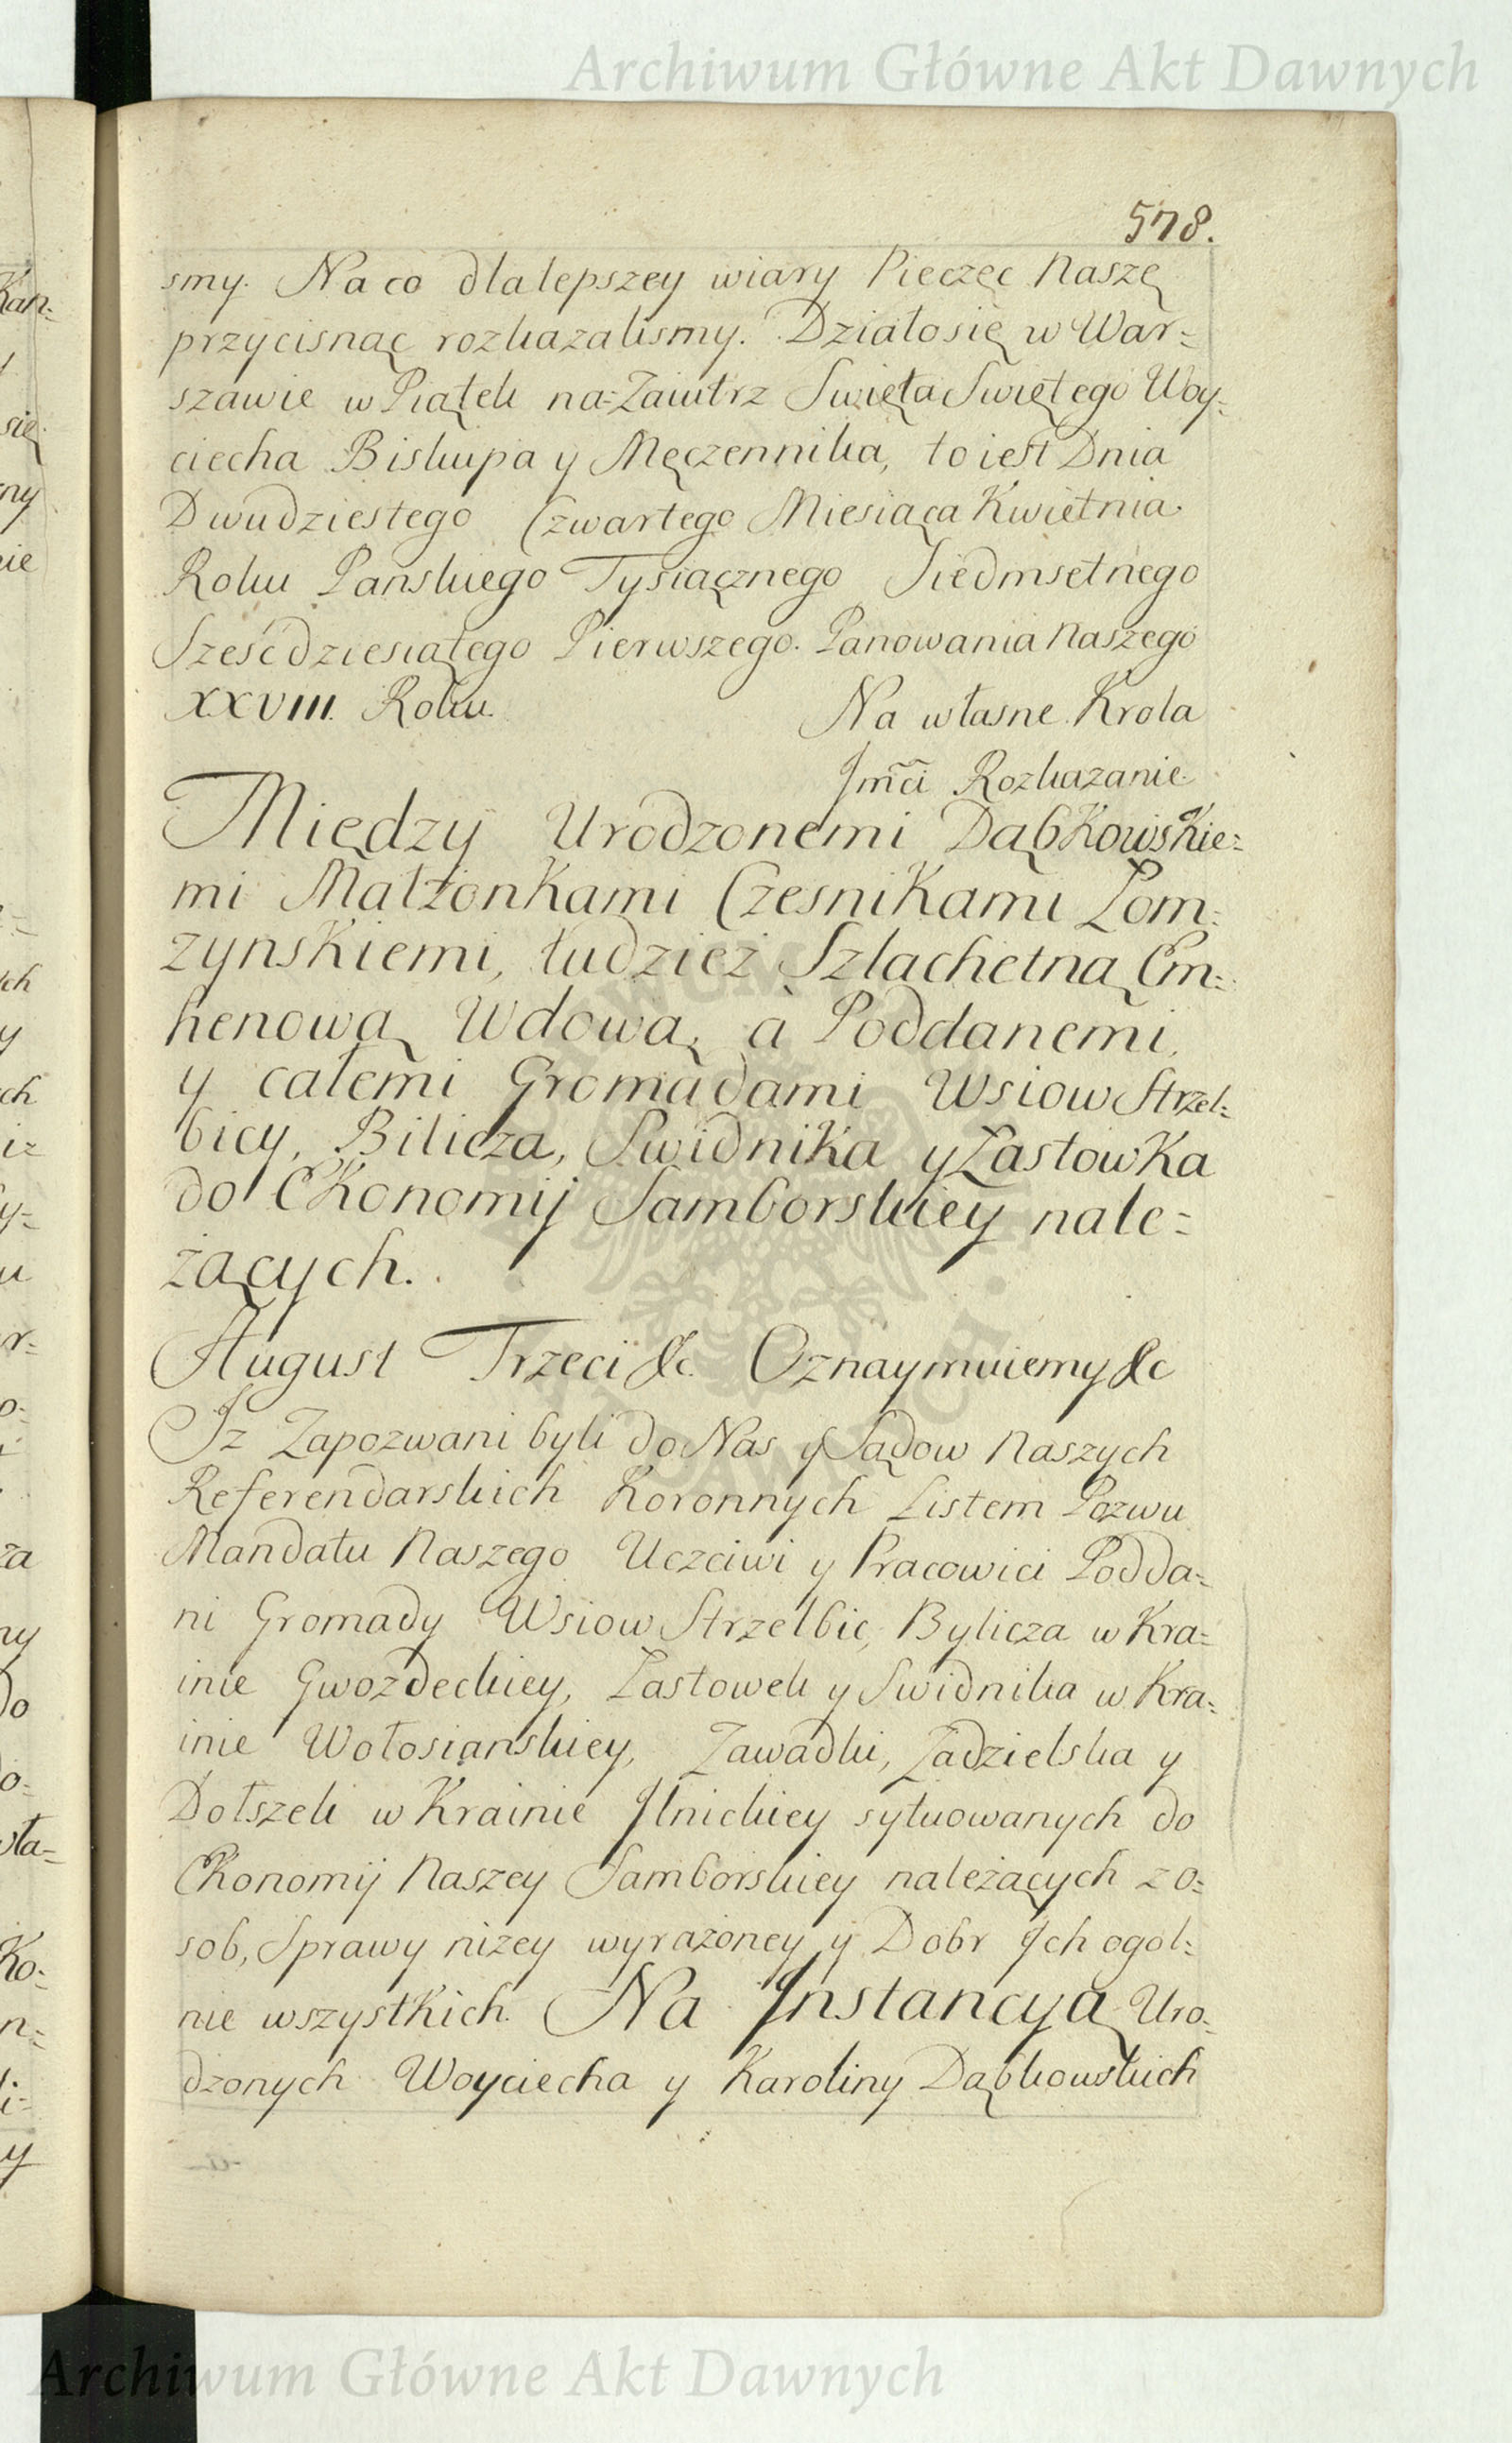 Archiwum Główne Akt Dawnych
578.
smy. Na co dla lepszey wiary Pieczęc Naszę
przycisnąc rozkazalismy. Działo się w War=
szawie w Piątek na=Zaiutrz Swięta Swiętego Woy=
ciecha Biskupa y Męczennika, to iest Dnia
Dwudziestego Czwartego Miesiąca Kwietnia
Roku Panskiego Tysiącznego Siedmsetnego
Sześcdziesiątego Pierwszego. Panowania Naszego
XXVIII. Roku.
Na własne Krola
Jmći Rozkazanie.
Między Urodzonemi Dąbkowskie=
mi Małżonkami Czesnikami Łom=
zynskiemi, tudzież Szlachetną Em=
henową Wdową, a Poddanemi,
y całemi Gromadami Wsiow Strzel=
bicy, Bilicza, Swidnika y Łastowka
do Ekonomij Samborskiey nale=
żących.
August Trzeci &c. Oznaymuiemy &c
Jz Zapozwani byli do Nas y Sądow Naszych
Referendarskich Koronnych Listem Pozwu
Mandatu Naszego Uczciwi y Pracowici Podda=
ni Gromady Wsiow Strzelbic, Bylicza w Kra=
inie Gwozdeckiey, Łastowek y Swidnika w Kra=
inie Wołosianskiey, Zawadki, Zadzielska y
Dołszek w Krainie Jlnickiey sytuowanych do
Ekonomij Naszey Samborskiey należących z o=
sob, Sprawy niżey wyrażoney y Dobr Jch ogol=
nie wszystkich. Na Jnstancyą Uro=
dzonych Woyciecha y Karoliny Dąbkowskich
Archiwum Główne Akt Dawnych